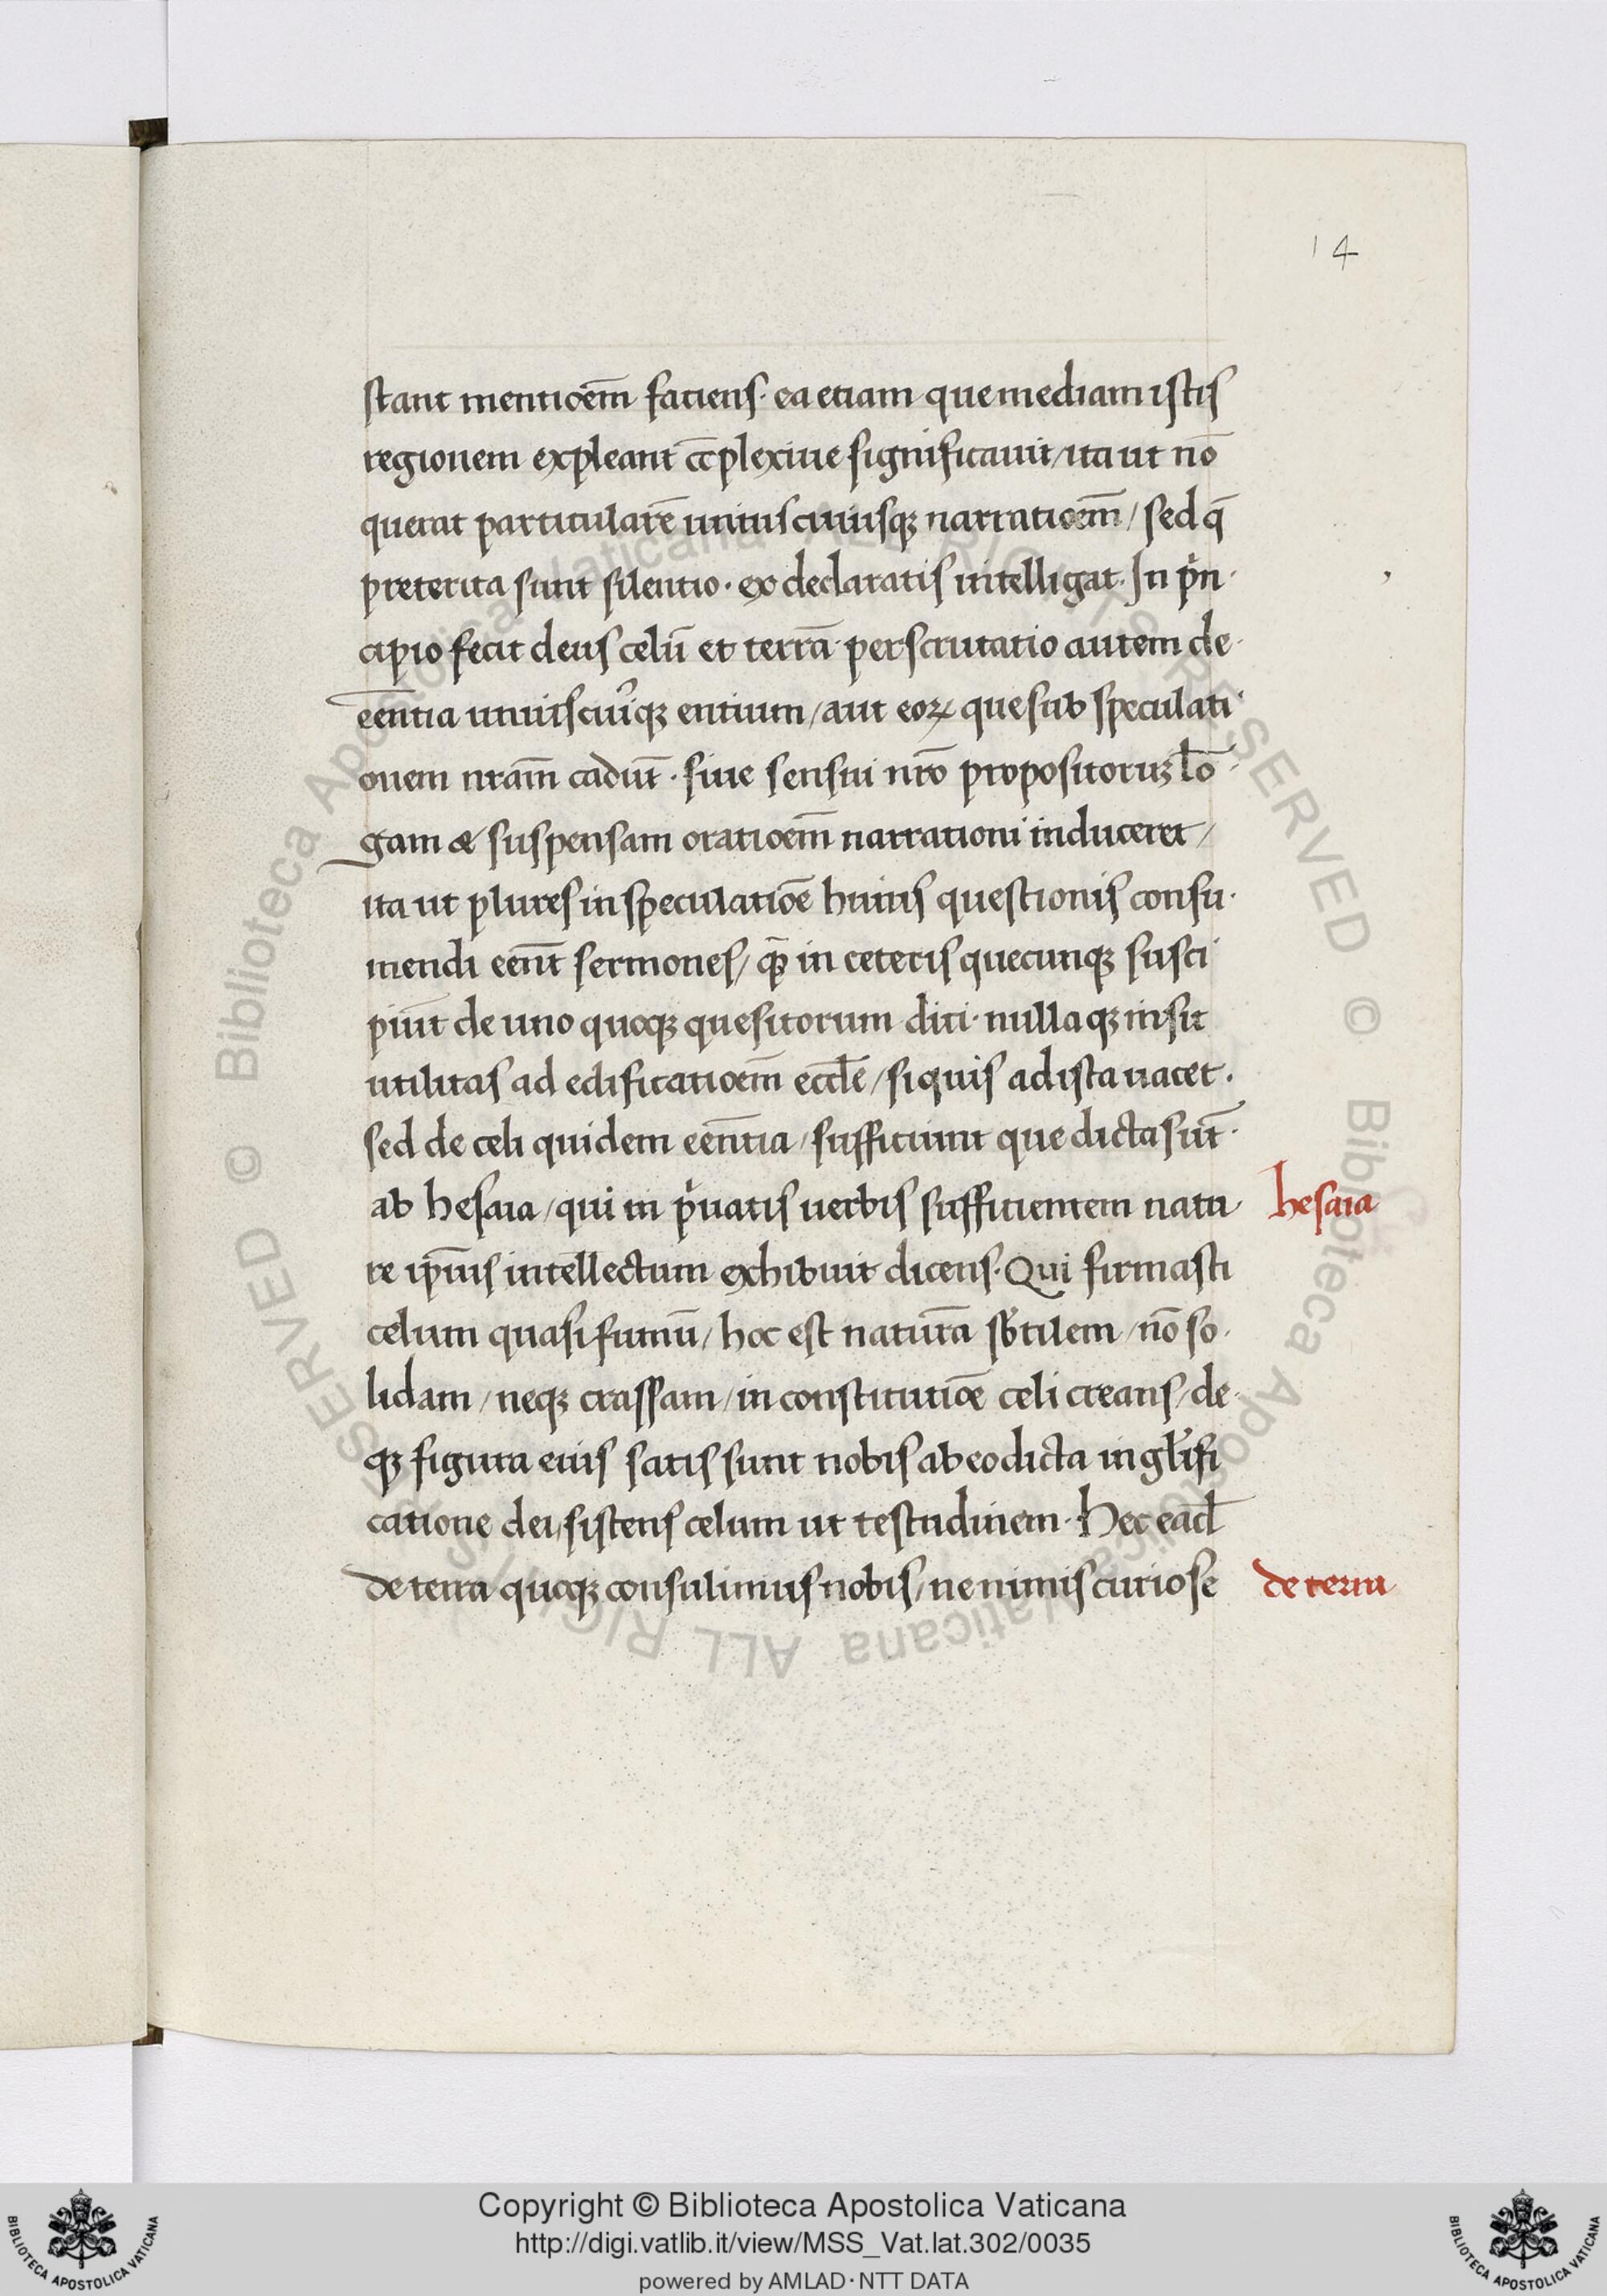 14
stant mentioem̄ fatiens · ea etiam que mediam istis
regionem expleant cc̄plexiue significauit / ita ut nō
querat particularē uniuscuiusqꝫ narratioem̄ / sed q̄
preterita sunt silentio · ex declaratis intelligat · In p̊n ·
cipio fecit deus celū et terrā · perscrutatio autem de ·
een̄tia uniuscui᷒qꝫ entium / aut eoꝝ que sub speculati ·
onem nr̄am cadūt · siue sensui nr̄o propositoruꝫ lō ·
gam & suspensam oratioem̄ narrationi induceret /
ita ut plures in speculatiōe huius questionis consu ·
mendi een̄t sermones / qꝫ̄ in ceteris quecunqꝫ susci ·
piūt de uno quoqꝫ quesitorum dici · nullaqꝫ insit
utilitas ad edificatioem̄ eccl̄e / siquis ad ista uacet ·
sed de celi quidem een̄tia / suffitiunt que dicta sūt ·
ab hesaia / qui in p̊uatis uerbis suffitientem natu ·
re ip̄ius intellectum exhibuit dicens · Qui firmasti
celum quasi fumū / hoc est naturā sb̓tilem / nō so ·
lidam / neqꝫ crassam / in constitutiōe celi creans / de ·
qꝫ figura eius satis sunt nobis ab eo dicta in gl̓ifi
catione dei / sistens celum ut testudinem · Hec ead̄
de terra quoqꝫ consulimus nobis / ne nimis curiose
hesaia
de terra
© Biblioteca Apostolica Vaticana ALL RIGHTS RESERVED © Biblioteca Apostolica Vaticana ALL RIGHTS RESERVED
Copyright © Biblioteca Apostolica Vaticana
http://digi.vatlib.it/view/MSS_Vat.lat.302/0035
powered by AMLAD·NTT DATA
BIBLIOTECA APOSTOLICA VATICANA
BIBLIOTECA APOSTOLICA VATICANA